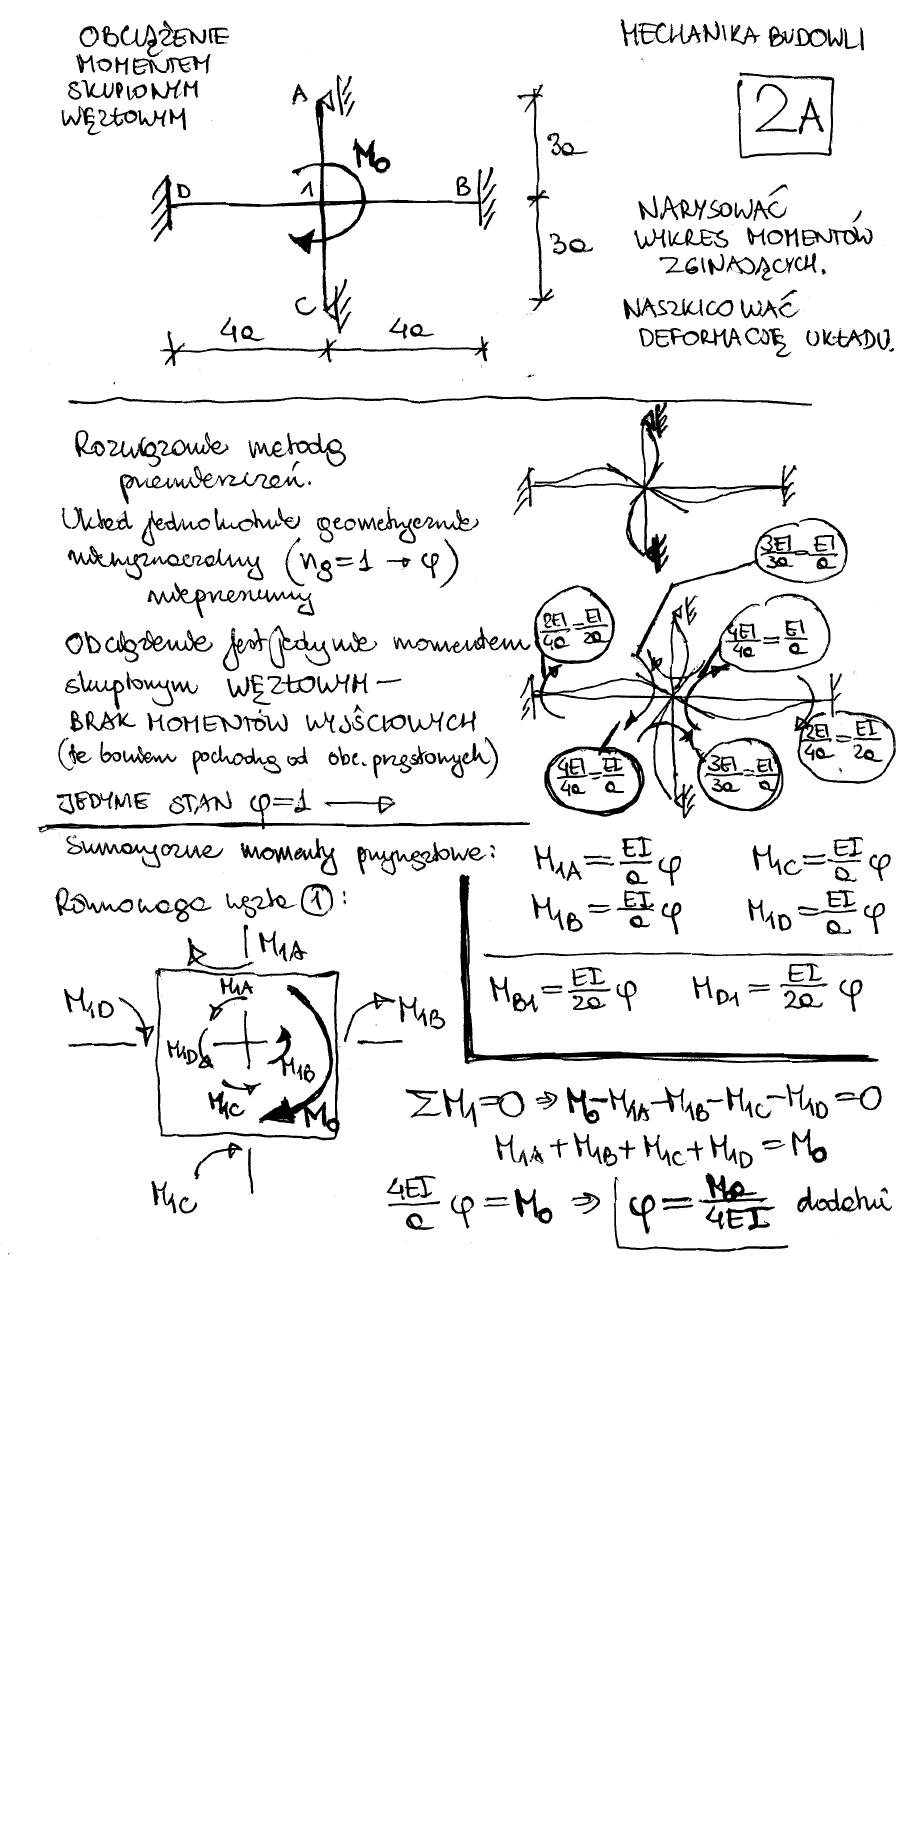 OBCIĄŻENIE
MOMENTEM
SKUPIONYM
WĘZŁOWYM
MECHANIKA BUDOWLI
2A
A
M₀
D
1
B
C
3a
3a
4a
4a
NARYSOWAĆ
WYKRES MOMENTÓW
ZGINAJĄCYCH.
NASZKICOWAĆ
DEFORMACJĘ UKŁADU.
Rozwiązanie metodą
przemieszczeń.
Układ jednokrotnie geometrycznie
niewyznaczalny (ng=1 → φ)
nieprzesuwny
Obciążenie jest jedynie momentem
skupionym WĘZŁOWYM –
BRAK MOMENTÓW WYJŚCIOWYCH
(te bowiem pochodzą od obc. przęsłowych)
JEDYNIE STAN φ=1 →
3EI/3a = EI/a
2EI/4a = EI/2a
4EI/4a = EI/a
2EI/4a = EI/2a
4EI/4a = EI/a
3EI/3a = EI/a
Sumaryczne momenty przywęzłowe:
M1A = EI/a φ M1C = EI/a φ
M1B = EI/a φ M1D = EI/a φ
MB1 = EI/2a φ MD1 = EI/2a φ
Równowaga węzła ①:
M1A
M1A
M1D
M1B
M1D
M1B
M1C
M₀
M1C
ΣM1=0 ⇒ M₀-M1A-M1B-M1C-M1D=0
M1A+M1B+M1C+M1D=M₀
4EI/a φ=M₀ ⇒ φ=M₀a/4EI